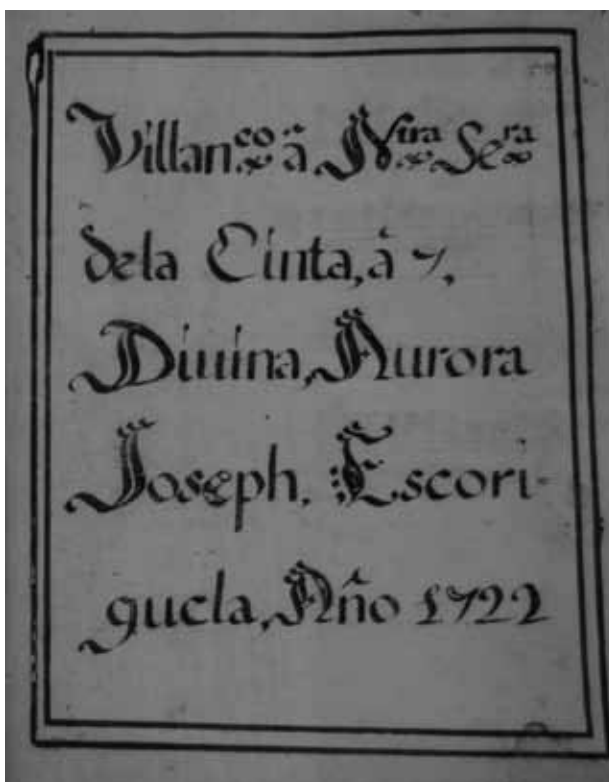 Villan.co â Ntra Sera
dela Cinta, â 7,
Diuina, Aurora
Joseph. Escori-
guela, Año 1722